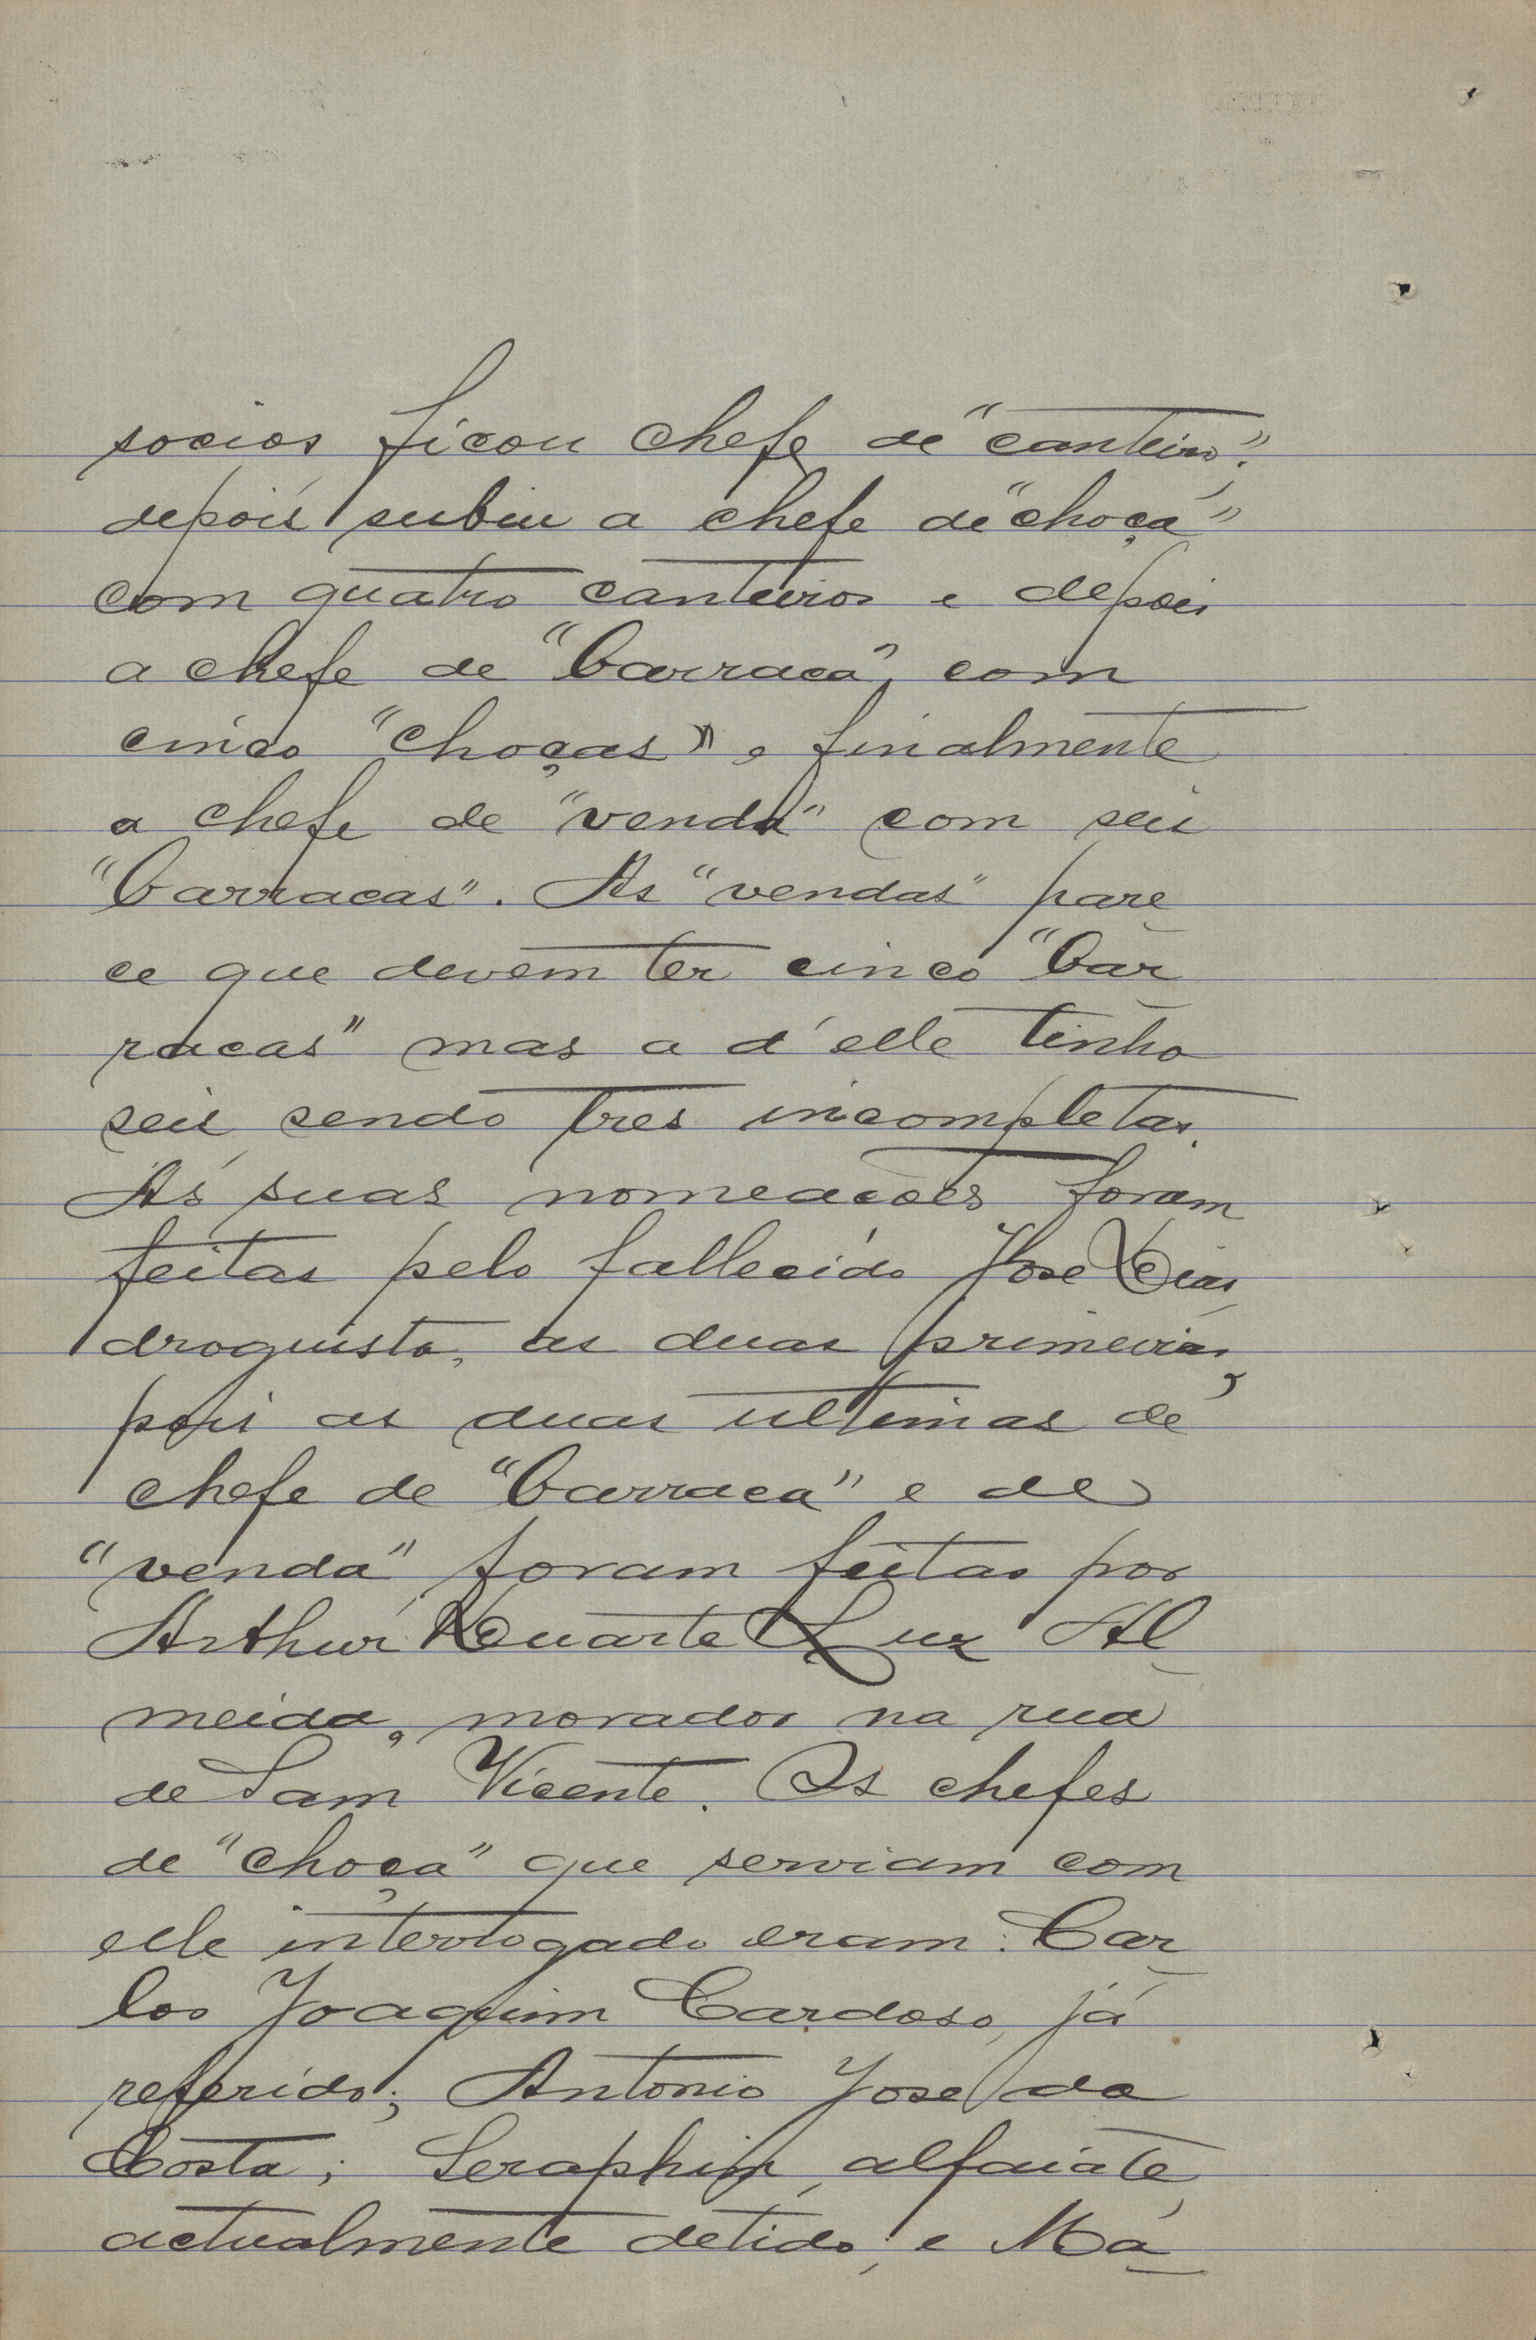 socios ficou chefe de "canteiro";
depois subiu a chefe de "choça"
com quatro canteiros e depois
a chefe de "barraca", com
cinco "choças" e finalmente
a chefe de "venda" com seis
"barracas". As "vendas" pare
ce que devem ter cinco "bar
racas" mas a d'elle tinha
seis sendo tres incompletas.
As suas nomeacões foram
feitas pelo fallecido José Dias
droguista, as duas primeiras,
pois as duas ultimas de
chefe de "barraca" e de
"venda" foram feitas por
Arthur Duarte Luz Al
meida, morador na rua
de Sam Vicente. Os chefes
de "choça" que serviam com
elle interrogado eram: Car
los Joaquim Cardoso, já
referido; Antonio José da
Costa; Seraphim, alfaiate,
actualmente detido; e Ma